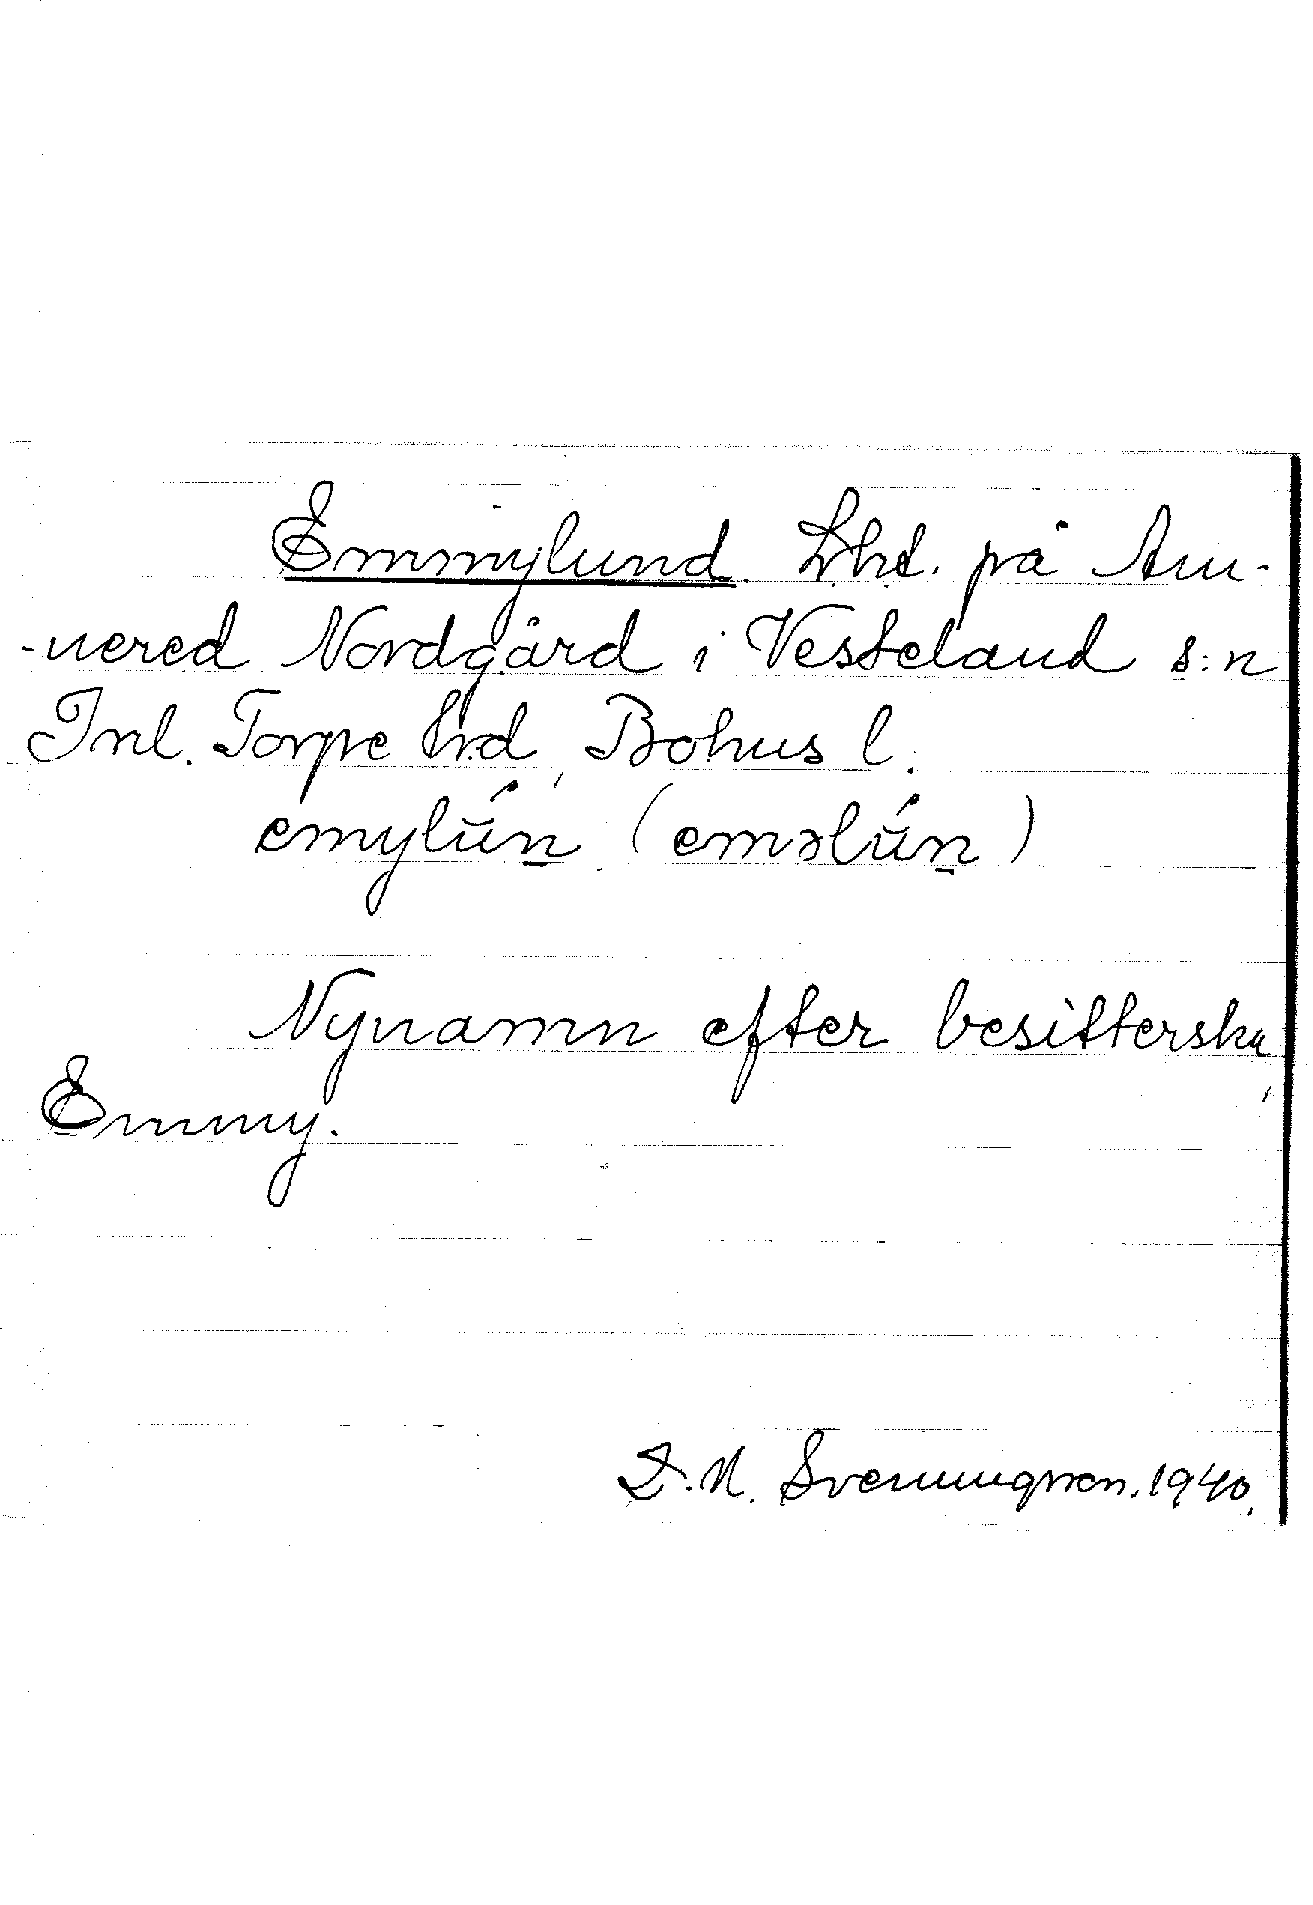 Emmylund. Lht. på Am-
-nered Nordgård i Vesteland s:n
Inl. Torpe hrd, Bohus l.
emylún (eməlún)
Nynamn efter besitterska
Emmy.
D.N. Svenningsson. 1940.